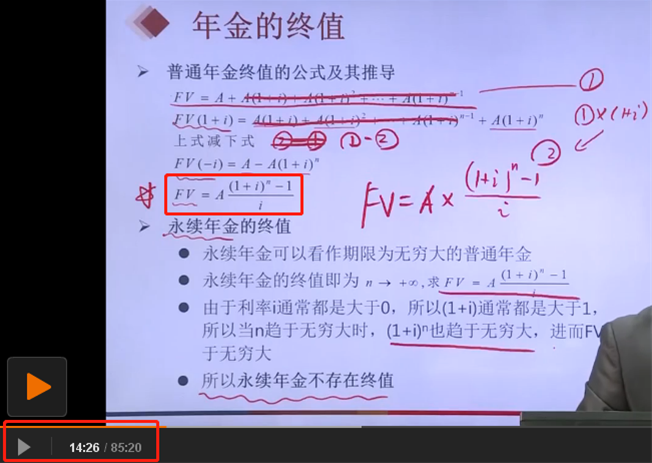 年金的终值
普通年金终值的公式及其推导
FV = A + A(1+i) + A(1+i)² + ⋯ + A(1+i)ⁿ⁻¹ ①
FV(1+i) = A(1+i) + A(1+i)² + ⋯ + A(1+i)ⁿ⁻¹ + A(1+i)ⁿ ①×(1+i)
上式减下式 ②-① ①-② ②
FV(-i) = A - A(1+i)ⁿ
FV = A ((1+i)ⁿ-1)/i FV = A × ((1+i)ⁿ-1)/i
永续年金的终值
永续年金可以看作期限为无穷大的普通年金
永续年金的终值即为 n → +∞, 求 FV = A ((1+i)ⁿ-1)/i
由于利率i通常都是大于0，所以(1+i)通常都是大于1，
所以当n趋于无穷大时，(1+i)ⁿ也趋于无穷大，进而FV
于无穷大
所以永续年金不存在终值
14:26 / 85:20